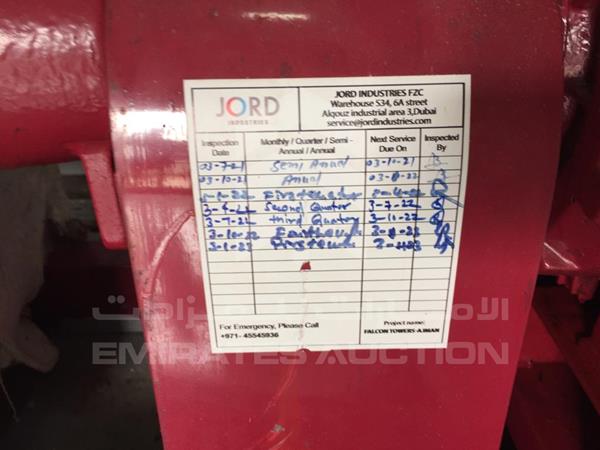 JORD
INDUSTRIES
JORD INDUSTRIES FZC
Warehouse S34, 6A street
Alqouz industrial area 3,Dubai
service@jordindustries.com
Inspection Date
Monthly / Quarter / Semi - Annual / Annual
Next Service Due On
Inspected By
03-7-21 Semi Annual 03-10-21
03-10-21 Annual
Second Quator 3-7-22
3-7-22 third Quator 3-11-22
3-10-22
3-1-23
For Emergency, Please Call
+971- 45545936
Project name:
FALCON TOWERS-AJMAN
الامارات للمزادات
EMIRATES AUCTION